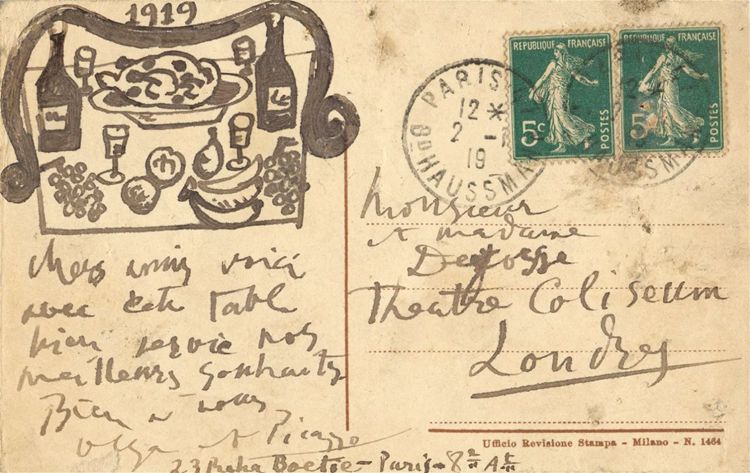 1919
chers amis voici
avec cete table
bien servie nos
meilleurs souhaits
Bien a vous
Olga et Picasso
23 Rue La Boetie - Paris - 8
PARIS
12 *
2 -
19
Bd HAUSSMA
REPUBLIQUE FRANÇAISE
5c
POSTES
REPUBLIQUE FRANÇAISE
5c
POSTES
Monsieur
et madame
Theatre Coliseum
Londres
Ufficio Revisione Stampa - Milano - N. 1464